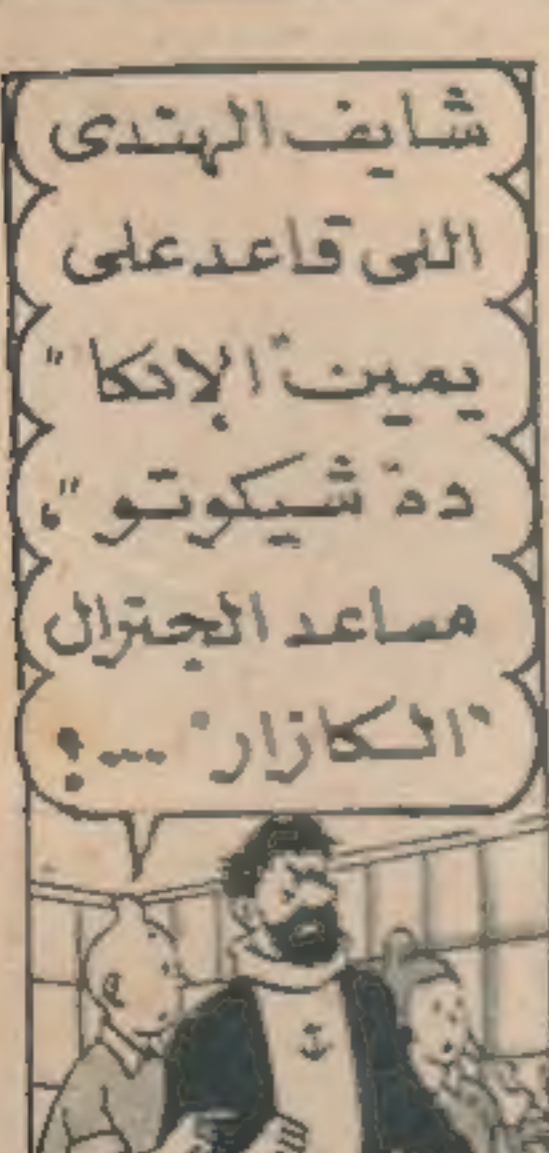 شايف الهندى
اللى قاعد على
يمين "الإنكا"
ده "شيكوتو"،
مساعد الجنرال
"الكازار" ...!